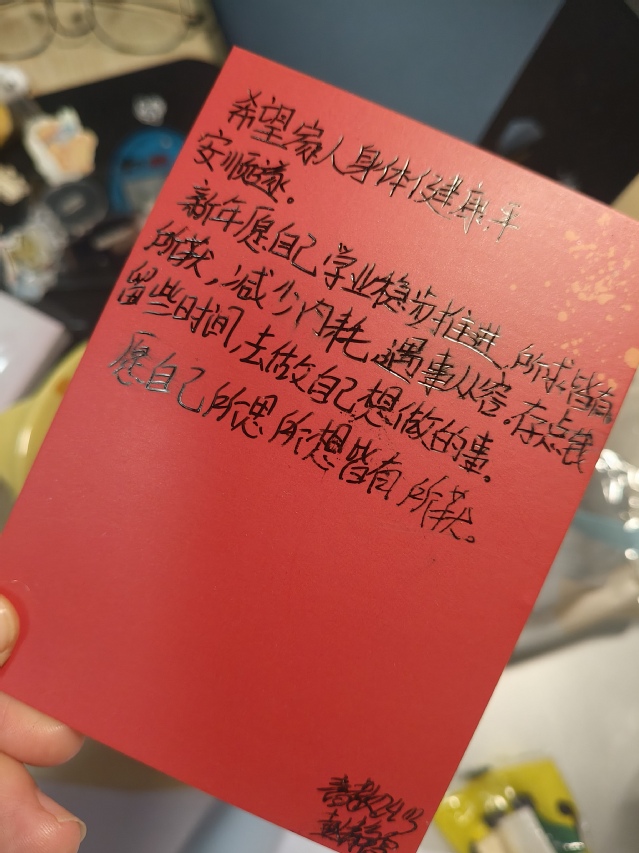 希望家人身体健康平
安顺遂。
新年愿自己学业稳步推进,所求皆有
所获,减少内耗,遇事从容。存点钱
留些时间,去做自己想做的事。
愿自己所思所想皆有所获。